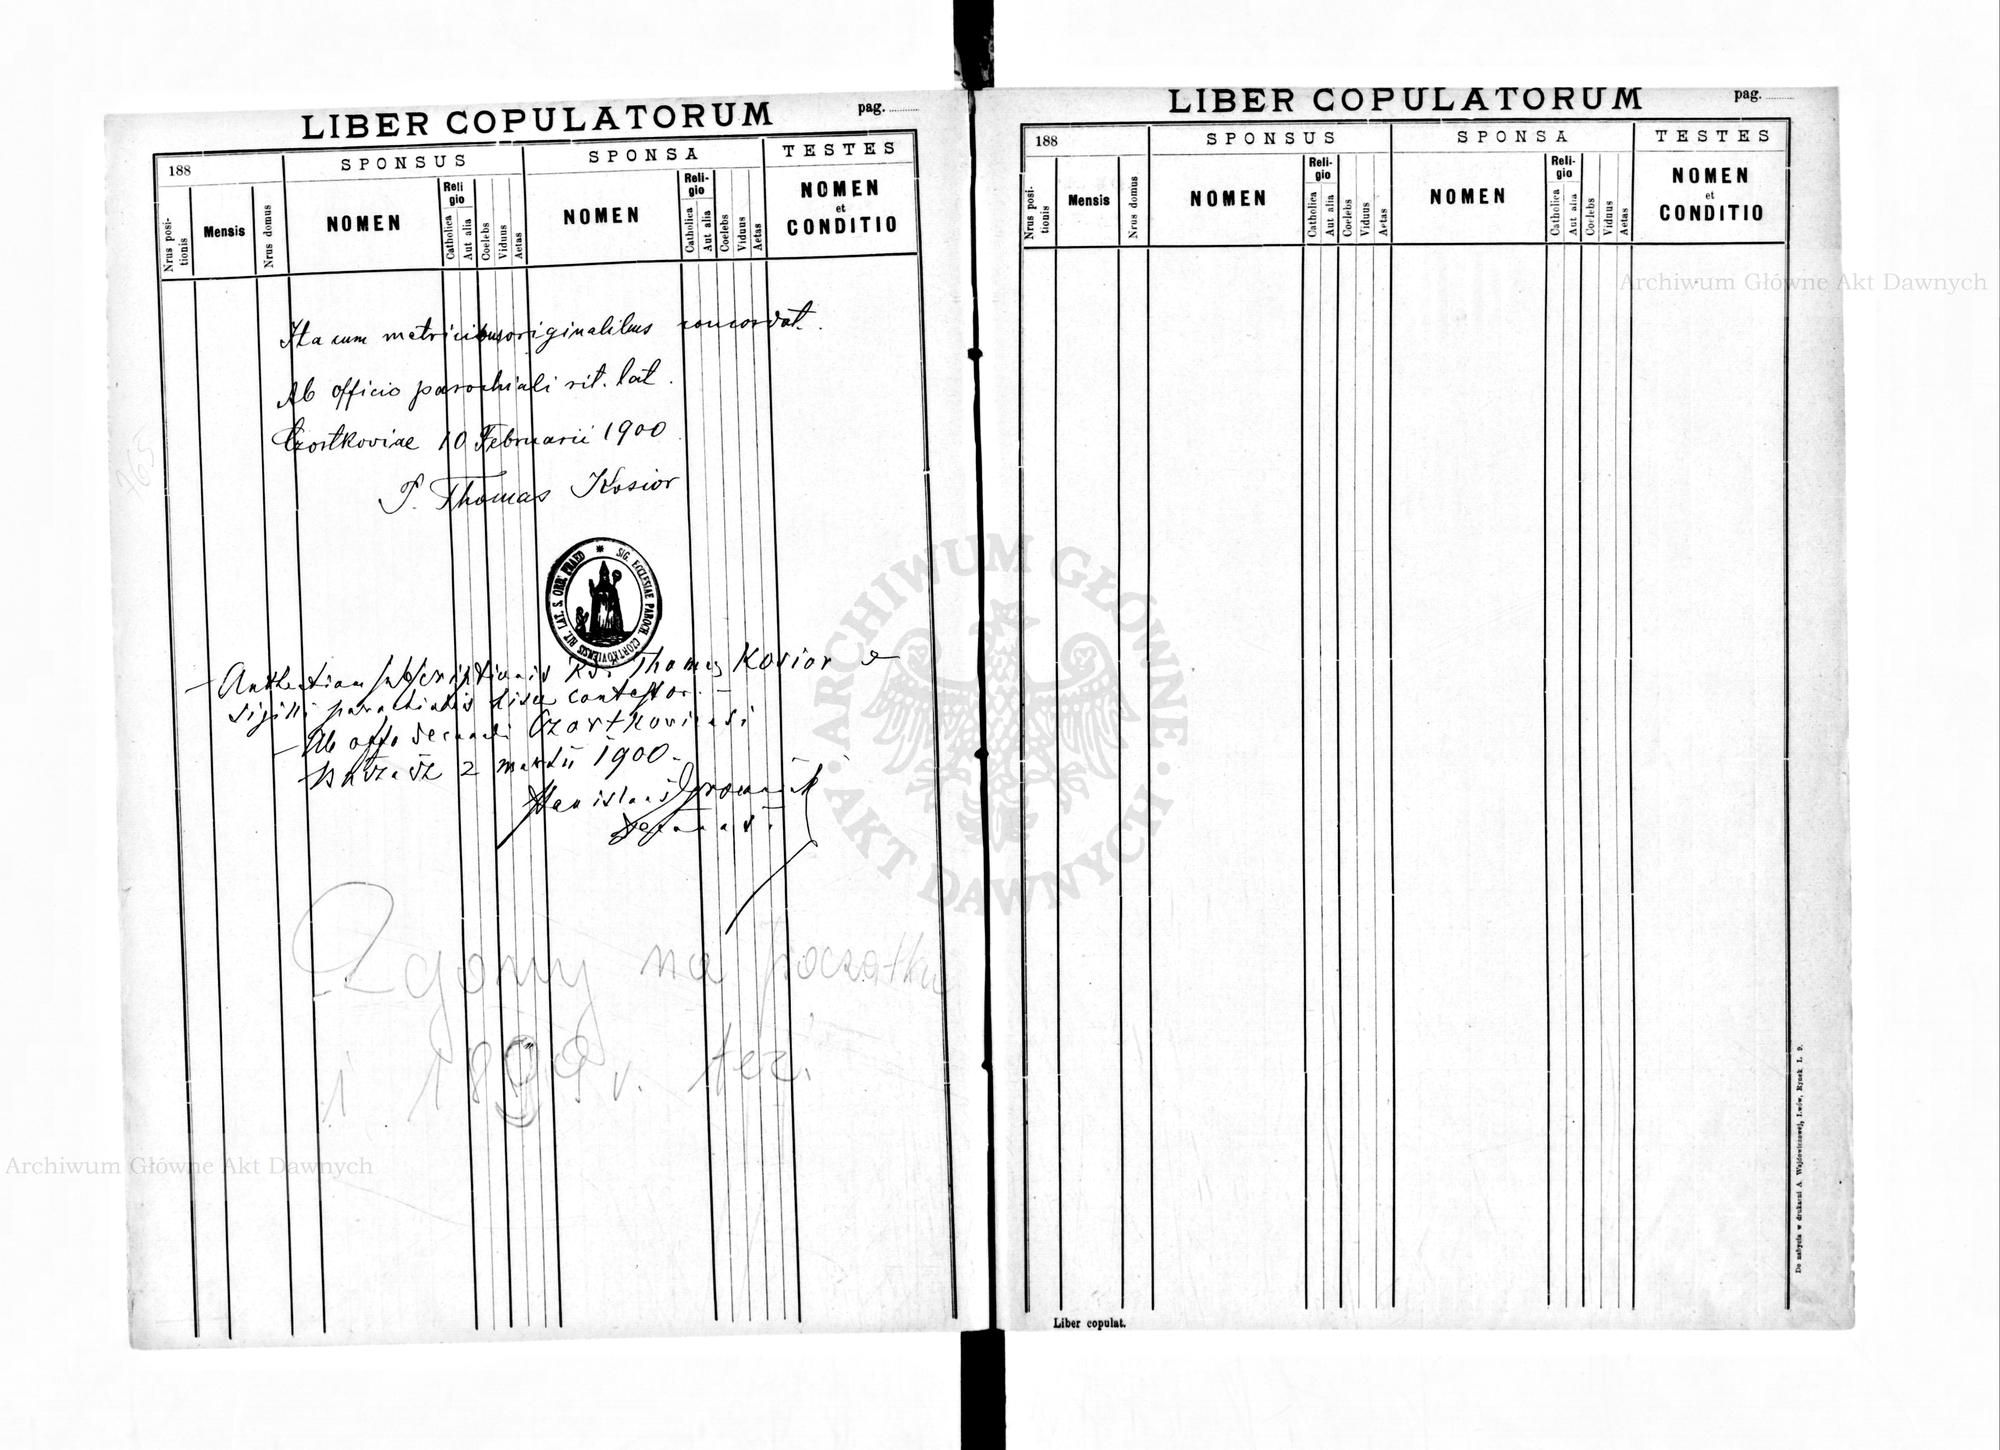 LIBER COPULATORUM
pag.
188
SPONSUS
SPONSA
TESTES
Nrus posi-
tionis
Mensis
Nrus domus
NOMEN
Reli
gio
Catholica
Aut alia
Coelebs
Viduus
Aetas
NOMEN
Reli-
gio
Catholica
Aut alia
Coelebs
Viduus
Aetas
NOMEN
et
CONDITIO
Ita cum metricibus originalibus concordat.
Ab officio parochiali rit. lat.
Czortkoviae 10 Februarii 1900
P. Thomas Kosior
SIG. ECCLESIAE PAROCH. CZORTKOVIENSIS RIT. LAT. S. ORD. PRAED
subscriptionis Thomas Kosior
sigilli parochialis
Ab offo Czortkoviensi
2 martii 1900.
Stanislaus
Zgony na początku
i 1899 r. też.
LIBER COPULATORUM
pag.
188
SPONSUS
SPONSA
TESTES
Nrus posi-
tionis
Mensis
Nrus domus
NOMEN
Reli-
gio
Catholica
Aut alia
Coelebs
Viduus
Aetas
NOMEN
Reli-
gio
Catholica
Aut alia
Coelebs
Viduus
Aetas
NOMEN
et
CONDITIO
Liber copulat.
Do nabycia w drukarni A. Wajdowiczowej, Lwów, Rynek L. 9.
Archiwum Główne Akt Dawnych
ARCHIWUM GŁÓWNE
AKT DAWNYCH
Archiwum Główne Akt Dawnych